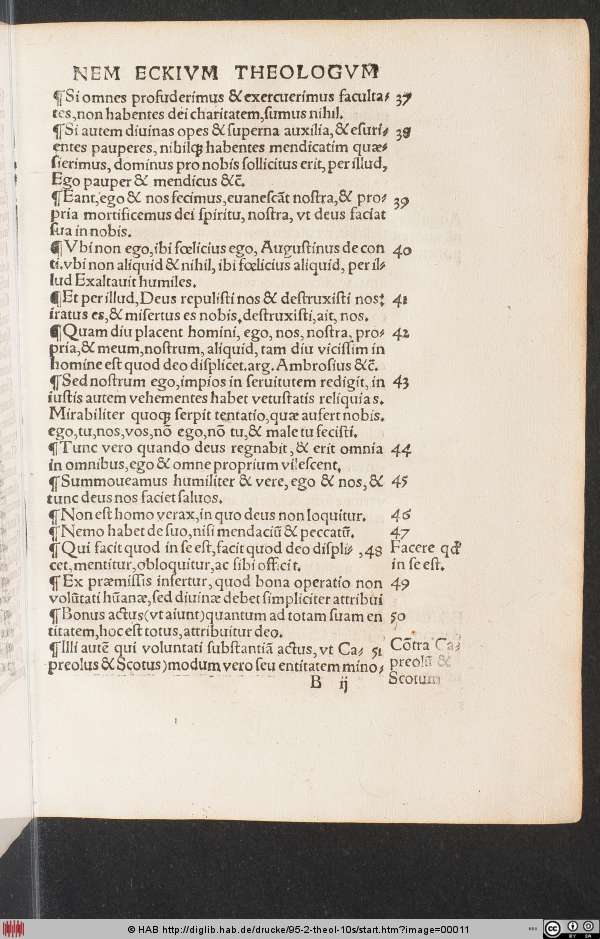 NEM ECKIVM THEOLOGVM
¶Si omnes profuderimus & exercuerimus faculta- 37
tes, non habentes dei charitatem, sumus nihil.
¶Si autem diuinas opes & superna auxilia, & esuri- 38
entes pauperes, nihilqꝫ habentes mendicatim quæ-
sierimus, dominus pro nobis sollicitus erit, per illud,
Ego pauper & mendicus &c̄.
¶Eant, ego & nos fecimus, euanescāt nostra, & pro- 39
pria mortificemus dei spiritu, nostra, vt deus faciat
sua in nobis.
¶Vbi non ego, ibi fœlicius ego, Augustinus de con 40
ti. vbi non aliquid & nihil, ibi fœlicius aliquid, per il-
lud Exaltauit humiles.
¶Et per illud, Deus repulisti nos & destruxisti nos: 41
iratus es, & misertus es nobis. destruxisti, ait, nos.
¶Quam diu placent homini, ego, nos, nostra, pro- 42
pria, & meum, nostrum, aliquid, tam diu vicissim in
homine est quod deo displicet. arg. Ambrosius &c̄.
¶Sed nostrum ego, impios in seruitutem redigit, in 43
iustis autem vehementes habet vetustatis reliquias.
Mirabiliter quoqꝫ serpit tentatio, quæ aufert nobis.
ego, tu, nos, vos, nō ego, nō tu, & male tu fecisti.
¶Tunc vero quando deus regnabit, & erit omnia 44
in omnibus, ego & omne proprium vilescent.
¶Summoueamus humiliter & vere, ego & nos, & 45
tunc deus nos faciet saluos.
¶Non est homo verax, in quo deus non loquitur. 46
¶Nemo habet de suo, nisi mendaciū & peccatū. 47
¶Qui facit quod in se est, facit quod deo displi-, 48 Facere qđ
cet, mentitur, obloquitur, ac sibi officit. in se est.
¶Ex præmissis infertur, quod bona operatio non 49
volūtati hūanæ, sed diuinæ debet simpliciter attribui
¶Bonus actus (vt aiunt) quantum ad totam suam en 50
titatem, hoc est totus, attribuitur deo.
¶Illi autē qui voluntati substantiā actus, vt Ca- 51 Cōtra Ca-
preolus & Scotus) modum vero seu entitatem mino- preolū &
B ij Scotum
© HAB http://diglib.hab.de/drucke/95-2-theol-10s/start.htm?image=00011